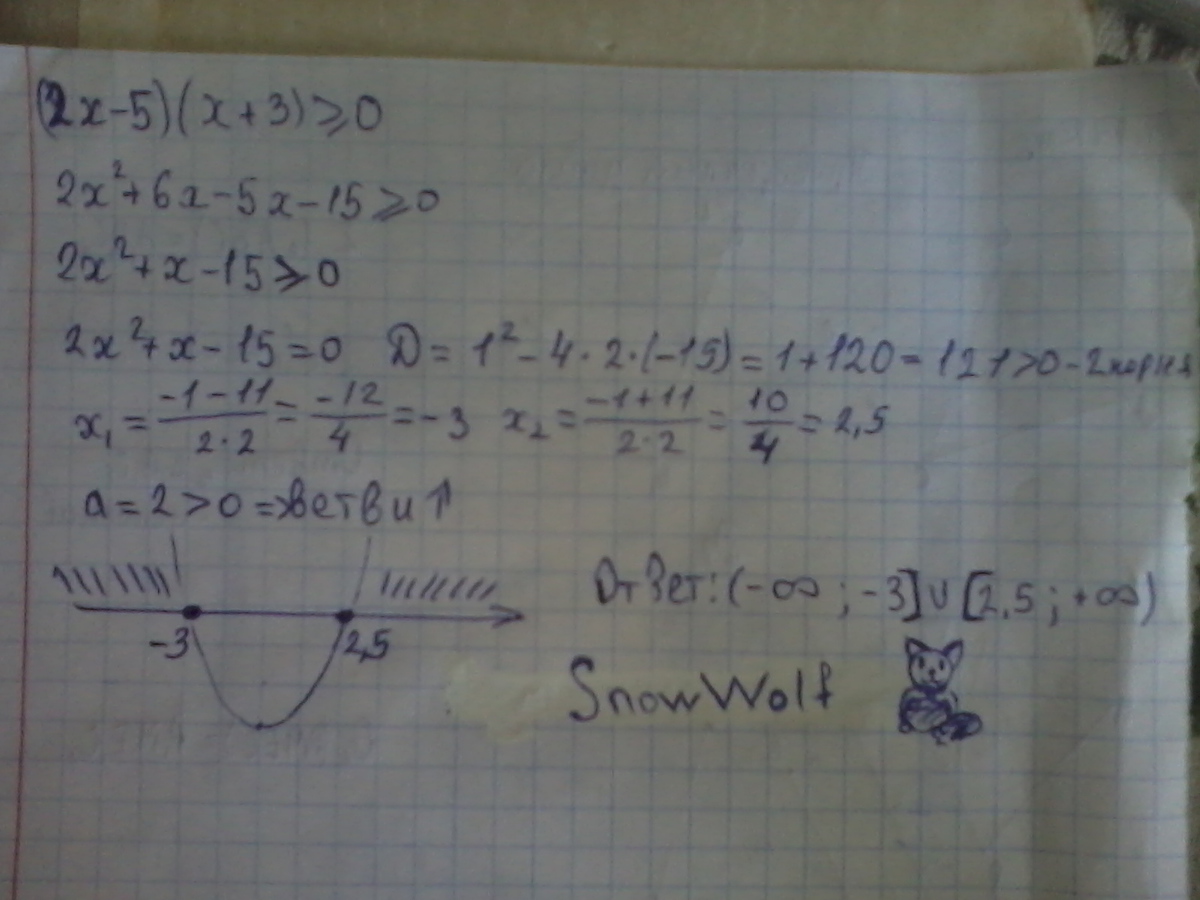 (2x-5)(x+3)≥0
2x²+6x-5x-15≥0
2x²+x-15≥0
2x²+x-15=0 D=1²-4·2·(-15)=1+120=121>0-2корня
x₁=(-1-11)/(2·2)=(-12)/4=-3 x₂=(-1+11)/(2·2)=10/4=2,5
a=2>0=>ветви↑
Ответ:(-∞;-3]∪[2,5;+∞)
-3 2,5
SnowWolf